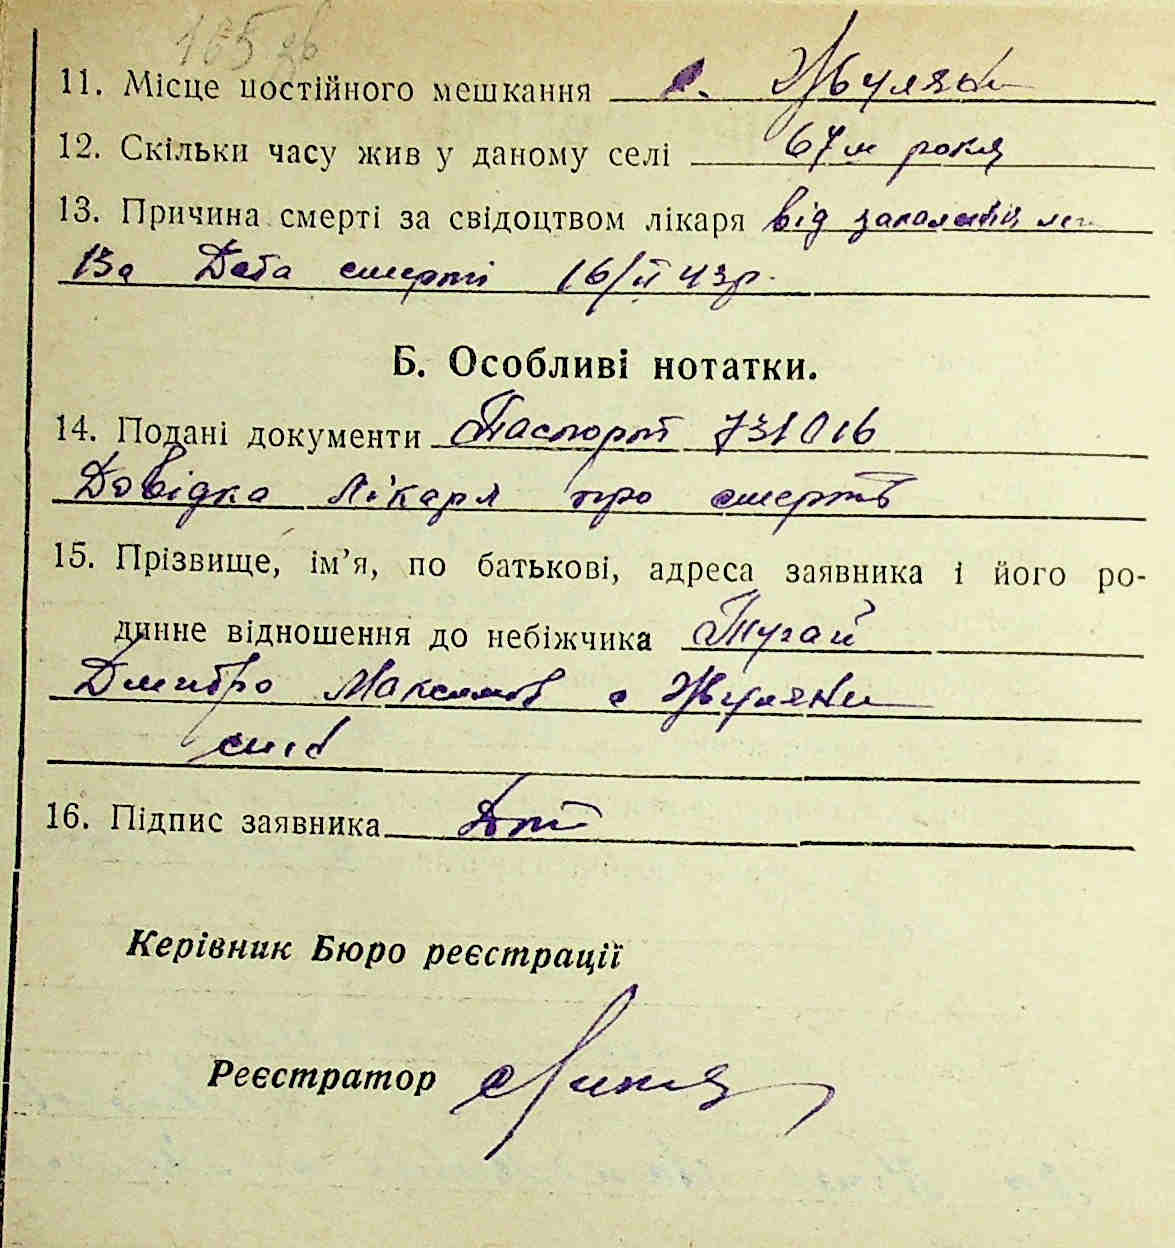 165 зв
11. Місце постійного мешкання с. Жуляни
12. Скільки часу жив у даному селі 67м рокя
13. Причина смерті за свідоцтвом лікаря від запаления лег
Дата смерті 16/II 43р.
Б. Особливі нотатки.
14. Подані документи Паспорт 731016
Довідка Лікаря про смерть
15. Прізвище, ім’я, по батькові, адреса заявника і його ро-
динне відношення до небіжчика Тугай
Дмитро Максимов с Жуляни
син
16. Підпис заявника
Керівник Бюро реєстрації
Реєстратор